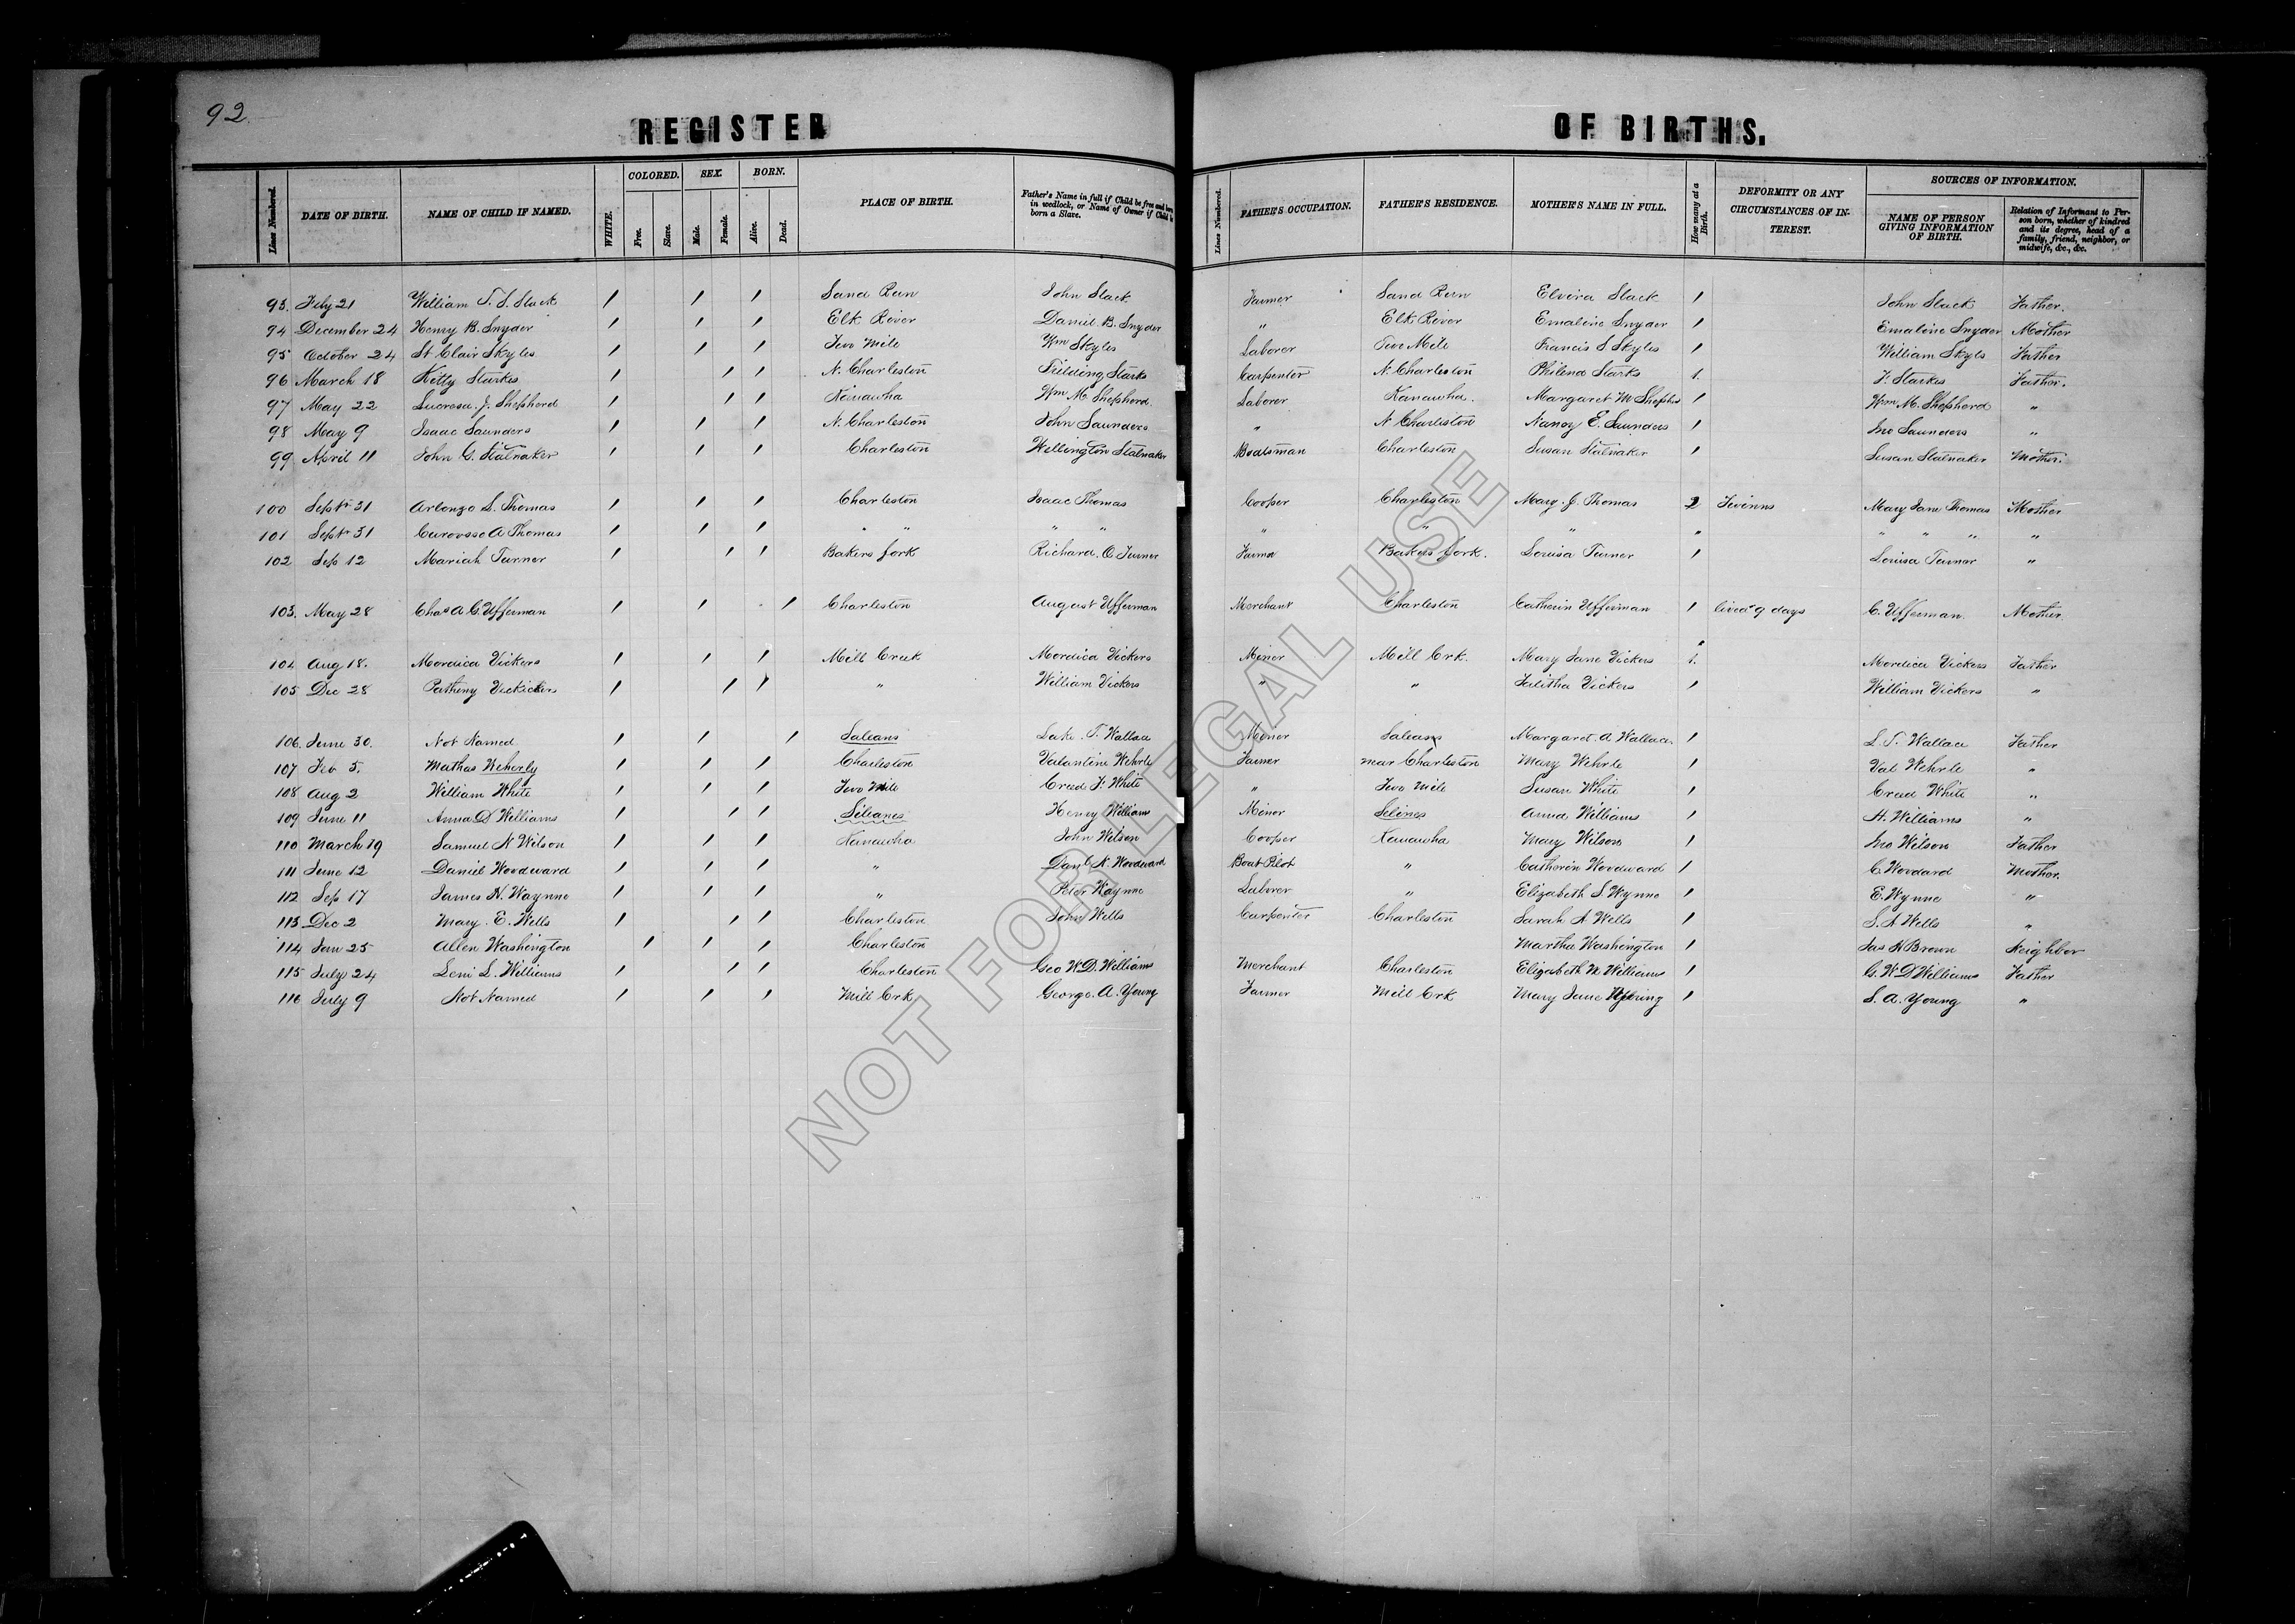 92
REGISTER OF BIRTHS.
Lines Numbered. DATE OF BIRTH. NAME OF CHILD IF NAMED. WHITE. COLORED. Free. Slave. SEX. Male. Female. BORN. Alive. Dead. PLACE OF BIRTH. Father's Name in full if Child be free and born in wedlock, or Name of Owner if Child be born a Slave. Lines Numbered. FATHER'S OCCUPATION. FATHER'S RESIDENCE. MOTHER'S NAME IN FULL. How many at a Birth. DEFORMITY OR ANY CIRCUMSTANCES OF INTEREST. SOURCES OF INFORMATION. NAME OF PERSON GIVING INFORMATION OF BIRTH. Relation of Informant to Person born, whether of kindred and its degree, head of a family, friend, neighbor, or midwife, &c., &c.
93. Feby 21 William T. S. Slack / / / Sand Run John Slack Farmer Sand Run Elvira Slack 1 John Slack Father.
94 December 24 Henry B. Snyder / / / Elk River Daniel B. Snyder " Elk River Emaline Snyder 1 Emaline Snyder Mother
95 October 24 St Clair Skyles / / / Two Mile Wm Skyles Laborer Two Mile Francis S Skyles 1 William Skyls Father
96 March 18 Kitty Starkes / / / N. Charleston Fielding Starks Carpenter N. Charleston Philena Starks 1. F. Starkes Father.
97 May 22 Lucrosa J. Shepherd / / / Kanawha Wm M. Shepherd. Laborer Kanawha. Margaret M Shepherd 1 Wm M. Shepherd "
98 May 9 Isaac Saunders / / / N. Charleston John Saunders " N Charleston Nancy E. Saunders 1 Jno Saunders "
99 April 11 John G. Stalnaker / / / Charleston Wellington Stalnaker Boatsman Charleston Susan Stalnaker 1 Susan Stalnaker Mother.
100 Sept 31 Arlonzo S. Thomas / / / Charleston Isaac Thomas Cooper Charleston Mary J. Thomas 2 Mary Jane Thomas Mother
101 Sept 31 Carousso A Thomas / / / " " " " " " " " " " " "
102 Sep 12 Mariah Turner / / / Bakers fork Richard. O. Turner Farmer Bakers fork. Louisa Turner 1 Louisa Turner "
103. May 28 Chas A G Ufferman / / / Charleston August Ufferman Merchant Charleston Catherin Ufferman 1 lived 9 days C. Ufferman. Mother
104 Aug 18. Mordica Vickers / / / Mill Creek Mordica Vickers Miner Mill Crk. Mary Jane Vickers 1. Mordica Vickers Father
105 Dec 28 Patheny Vickers / / / " William Vickers " " Talitha Vickers 1 William Vickers "
106. June 30. Not Named / / / Saleans Luke. T. Wallace Miner Saleans Margaret. A Wallace. 1 L. T. Wallace Father
107 Feb 5. Mathas Weherly / / / Charleston Valantine Wehrle Farmer near Charleston Mary Wehrle 1 Val Wehrle "
108 Aug 2 William White / / / Two Mile Creed F. White " Two Mile Susan White 1 Creed White "
109 June 11 Anna D Williams / / / Silianes Henry Williams Minor Selines Anna Williams 1 H. Williams "
110 March 19 Samuel N Wilson / / / Kanawha John Wilson Cooper Kanawha Mary Wilson 1 Jno Wilson Father
111 June 12 Daniel Woodward / / / " Danl N. Woodward Boat Pilot " Catherin Woodward 1 C. Woodard Mother.
112 Sep 17 James H. Waynne / / / " Peter Waynne Laborer " Elizabeth S Wynne 1 E. Wynne "
113 Dec 2 Mary. E. Wells / / / Charleston John Wells Carpenter Charleston Sarah A Wells 1 S. A Wells "
114 Jan 25 Allen Washington / / / Charleston Martha Washington 1 Jas H Brown Neighbor
115 July 24 Leni L. Williams / / / Charleston Geo W. D. Williams Merchant Charleston Elizabeth M Williams 1 G. W D Williams Father
116 July 9 Not Named / / / Mill Crk George. A. Young Farmer Mill Crk Mary Jane 1 S. A. Young "
NOT FOR LEGAL USE